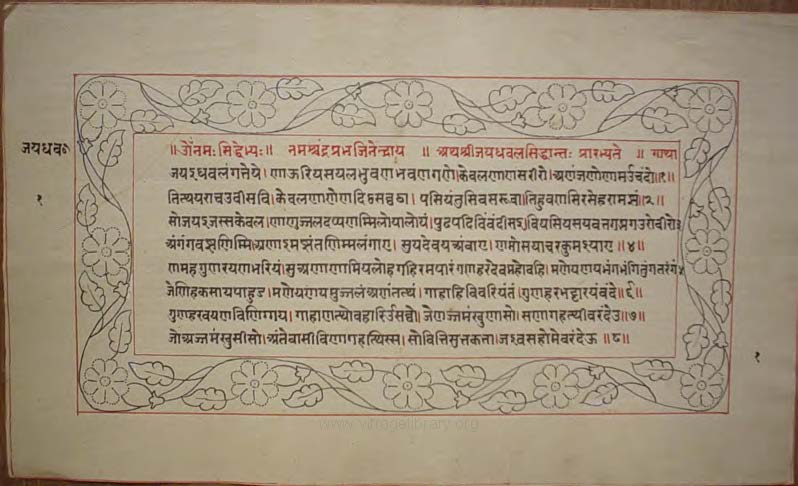 ॥ ओंनमः सिद्धेभ्यः॥ नमश्चंद्रप्रभजिनेन्द्राय ॥ अथश्रीजयधवलसिद्धान्तः प्रारभ्यते ॥ गाथा
जयधव
१
जयइधवलंगतेये। णाऊरियसयलभुवणभवणगणो। केवलणाणसरीरो। अणंजणोणामउचंदो॥१॥
तित्थयराचउवीसवि। केवलणाणेणदिट्ठसव्वट्ठा। पसियंतुसिवसरूवा। तिहुवणसिरसेहरामज्झं॥२॥
सोजयइजस्सकेवल। णाणुज्जलदप्पणम्मिलोयालोयं। पुढपदिबिंबंदीसइ। वियसियसयवत्तगब्भगउरोवीरो३
अंगंगबज्झणिम्मि। अणाइमज्झंतणिम्मलंगाए। सुयदेवयअंबाए। णमोसयाचरकुमइयाए॥४॥
णमहगुणरयणभरियं। सुअणाणामियलोहगहिरमपारं। गणहरदेवमहोवहि। मणेयणयभंगभंगितुंगतरंगं५
जेणिहकसायपाहुड। मणेयणयमुज्जलंअणंतत्थं। गाहाहिविवरियंतं। गुणहरभट्टारयंवंदे॥६
गुणहरवयणविणिग्गय। गाहाणत्थोवहारिउसव्वो। जेणज्जमंखुणासो। सणागहत्थीवरंदेउ॥७॥
जोअज्जमंखुसीसो। अंतेवासीविणागहत्थिस्स। सोवित्तिसुत्तकत्ता। जइवसहोमेवरंदेऊ॥८॥
१
www.vitragelibrary.org